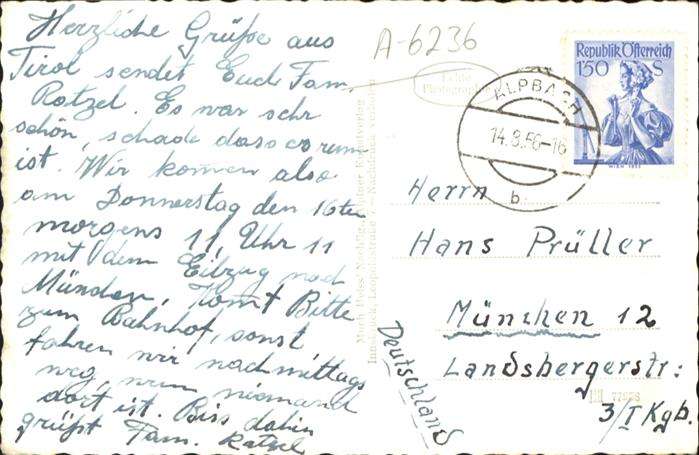 Herzliche Grüße aus
Tirol sendet Euch Fam.
Ratzel. Es war sehr
schön, schade dass es rum
ist. Wir komen also
am Donnerstag den 16ten
morgens 11 Uhr 11
mit dem Eilzug nach
Münden, Komt Bitte
zum Bahnhof, sonst
fahren wir nachmittags
weg, wenn niemand
dort ist. Biss dahin
grüßt Fam. Ratzel
A-6236
Echte
Photographie
Republik Österreich
1'50 S
WIEN 1833
ALPBACH
14.8.56-16
b
Herrn
Hans Prüller
München 12
Landsbergerstr:
3/I Kgb.
Deutschland